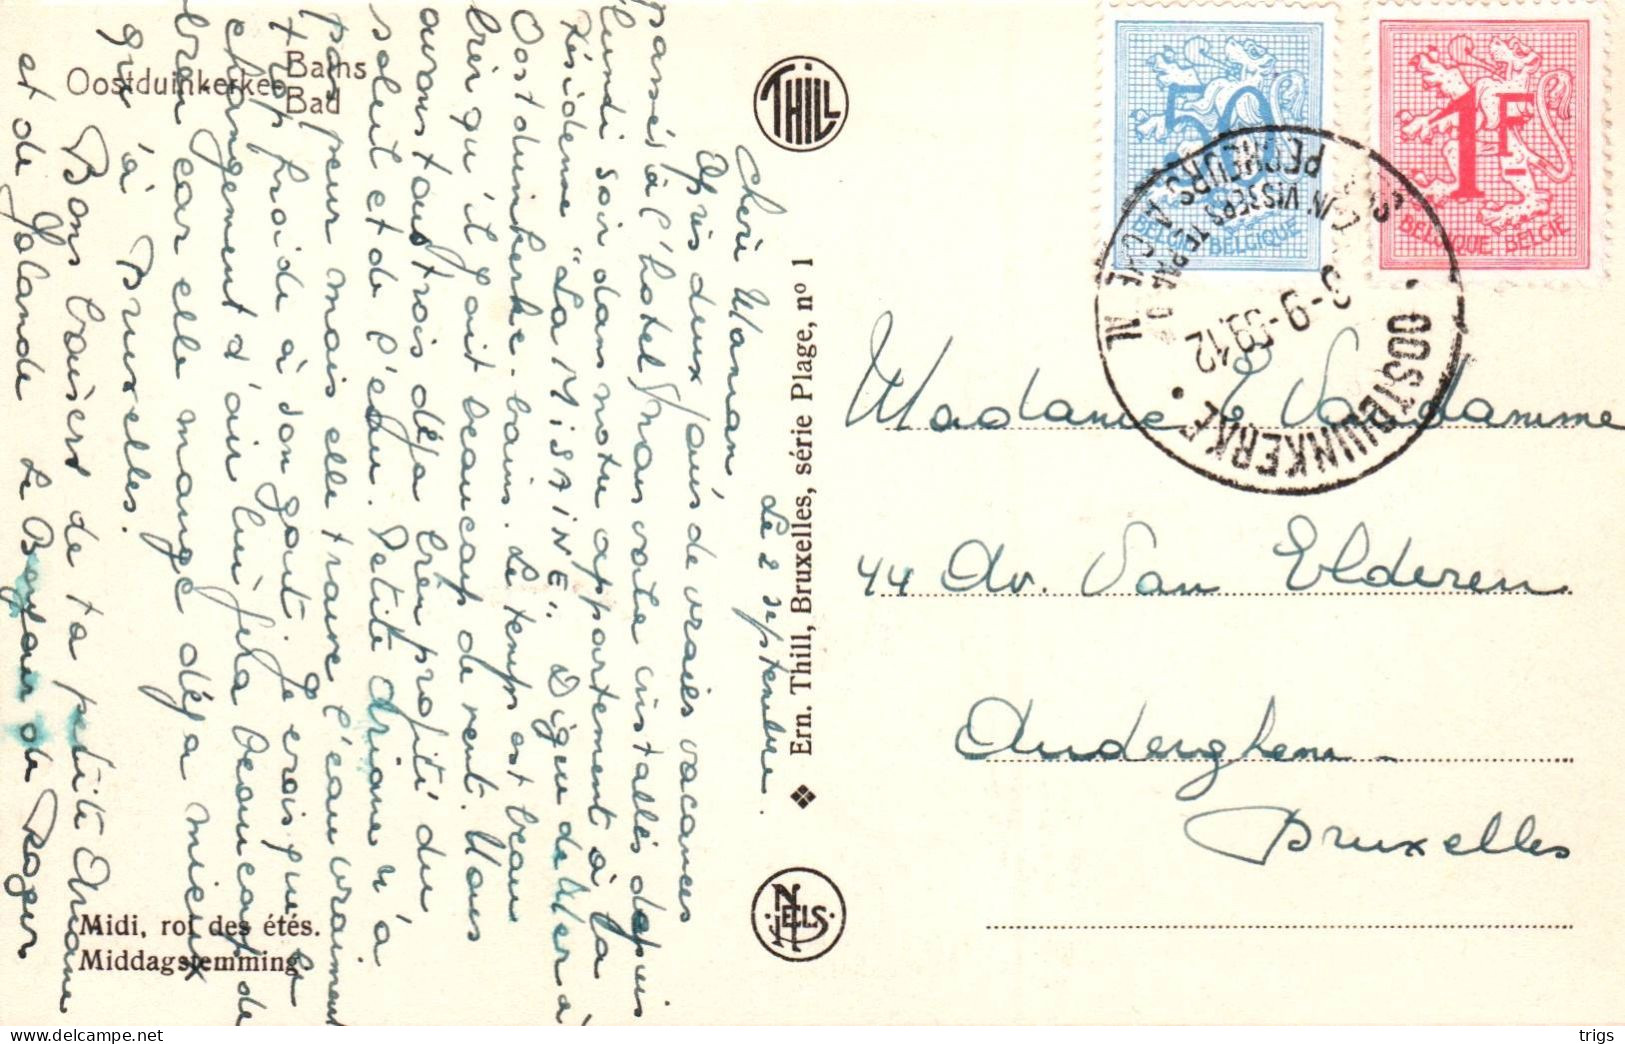 Oostduinkerke Bains
Bad
THILL
Le 2 septembre.
Chère Maman,
Après deux jours de vraies vacances
passés à l'hotel, nous voila installés depuis
lundi soir dans notre appartement à la
Résidence "LA MISAINE". Digue de Mer à
Oostduinkerke-bains. Le temps est beau
bien qu'il fait beaucoup de vent. Nous
avons tous trois déja bien profité du
soleil et de l'eau. Petite Ariane n'a
pas peur mais elle trouve l'eau vraiment
trop froide à son gout. Je crois que le
changement d'air lui fera beaucoup de
bien car elle mange déja mieux
qu'à Bruxelles.
Bons baisers de ta petite Ariane
et de Jolande. Le Bonjour de Roger
Midi, roi des étés.
Middagstemming.
❖ Ern. Thill, Bruxelles, série Plage, nº 1
NELS
50
BELGIE-BELGIQUE
1F
BELGIQUE-BELGIË
PECHEURS A CHEVAL
VISSERS TE PAARD
3-9-59.12
• OOSTDUINKERKE •
Madame Vandamme
44 Av. Van Elderen
Auderghem
Bruxelles
trigs